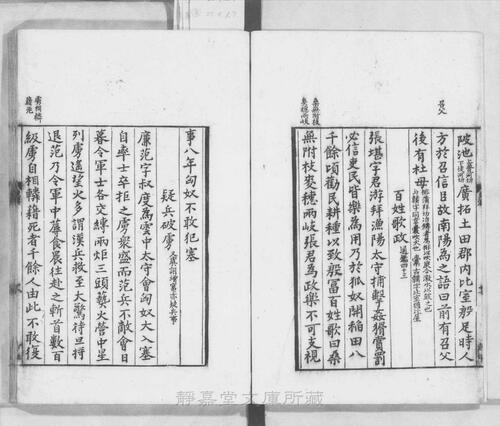 召父
陂池廣拓土田郡内比室殷足時人
方於召信臣故南陽為之語曰前有召父
後有杜母
百姓歌政 通鑑四十三
桑無附枝
麥穗兩岐
張堪字君游拜漁陽太守捕擊姦猾賞罰
必信吏民皆樂為用乃於狐奴開稻田八
千餘頃勸民耕種以致殷富百姓歌曰桑
無附枝麥穗兩岐張君為政樂不可支視
事八年匈奴不敢犯塞
疑兵破虜 虞詡增竈亦疑兵事
廉范字叔度為雲中太守會匈奴大入塞
自率士卒拒之虜衆盛而范兵不敵會日
暮令軍士各交縛兩炬三頭爇火營中星
列虜遥望火多謂漢兵救至大驚待旦將
退范乃令軍中蓐食晨往赴之斬首數百
級虜自相轔藉死者千餘人由此不敢復
虜相轔
藉死
靜嘉堂文庫所藏